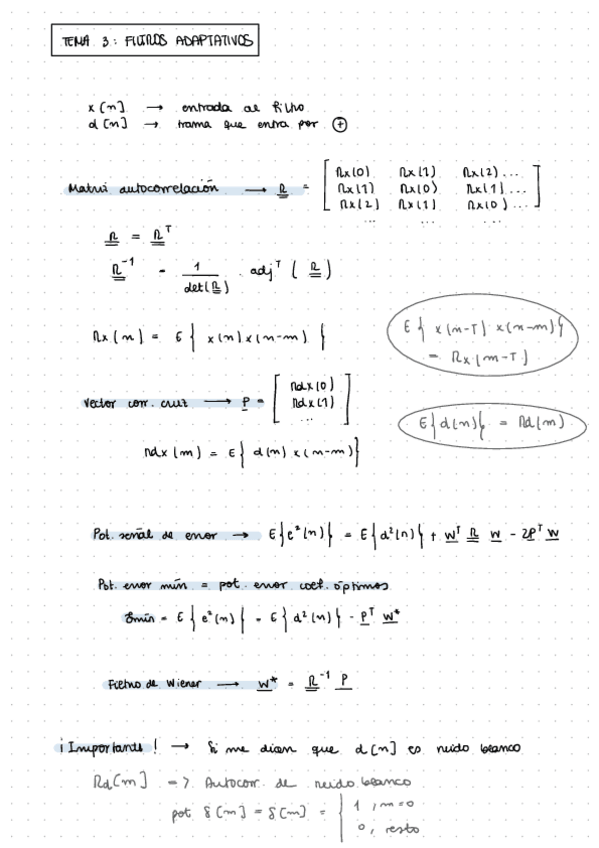 TEMA 3: FILTROS ADAPTATIVOS
x[n] → entrada al filtro
d[n] → trama que entra por ⊕
Matriz autocorrelación → R = [ Rx(0) Rx(1) Rx(2) ...
Rx(1) Rx(0) Rx(1) ...
Rx(2) Rx(1) Rx(0) ...
... ... ]
R = R^T
R^-1 = 1/det(R) · adj^T (R)
Rx(m) = E{ x(n) x(n-m) }
E{ x(n-T) x(n-m)} = Rx(m-T)
vector corr. cruz → P = [ Rdx(0)
Rdx(1)
... ]
E{d(n)} = Rd(m)
rdx(m) = E{ d(n) x(n-m)}
Pot. señal de error → E{e²(n)} = E{d²(n)} + W^T R W - 2P^T W
Pot. error mín = pot. error coef. óptimos
ξmín = E{ e²(n)} = E{ d²(n)} - P^T W*
Filtro de Wiener → W* = R^-1 P
¡Importante! → Si me dicen que d[n] es ruido blanco
Rd[m] => Autocorr. de ruido blanco
pot δ[m] = δ[m] = { 1, m=0
0, resto